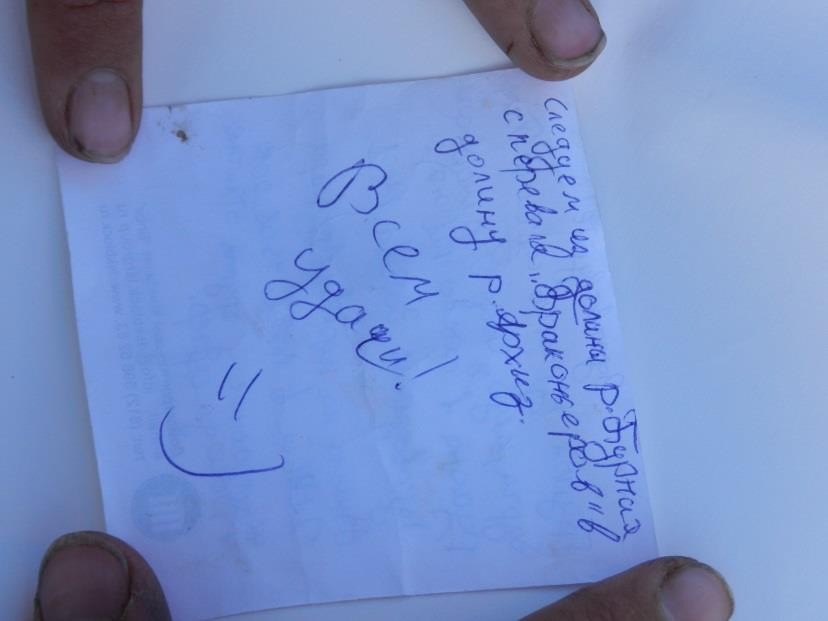 Следуем из долины р. Бурная
с перевала „Браконьеров" в
долину р. Архыз.
Всем
удачи!
=)